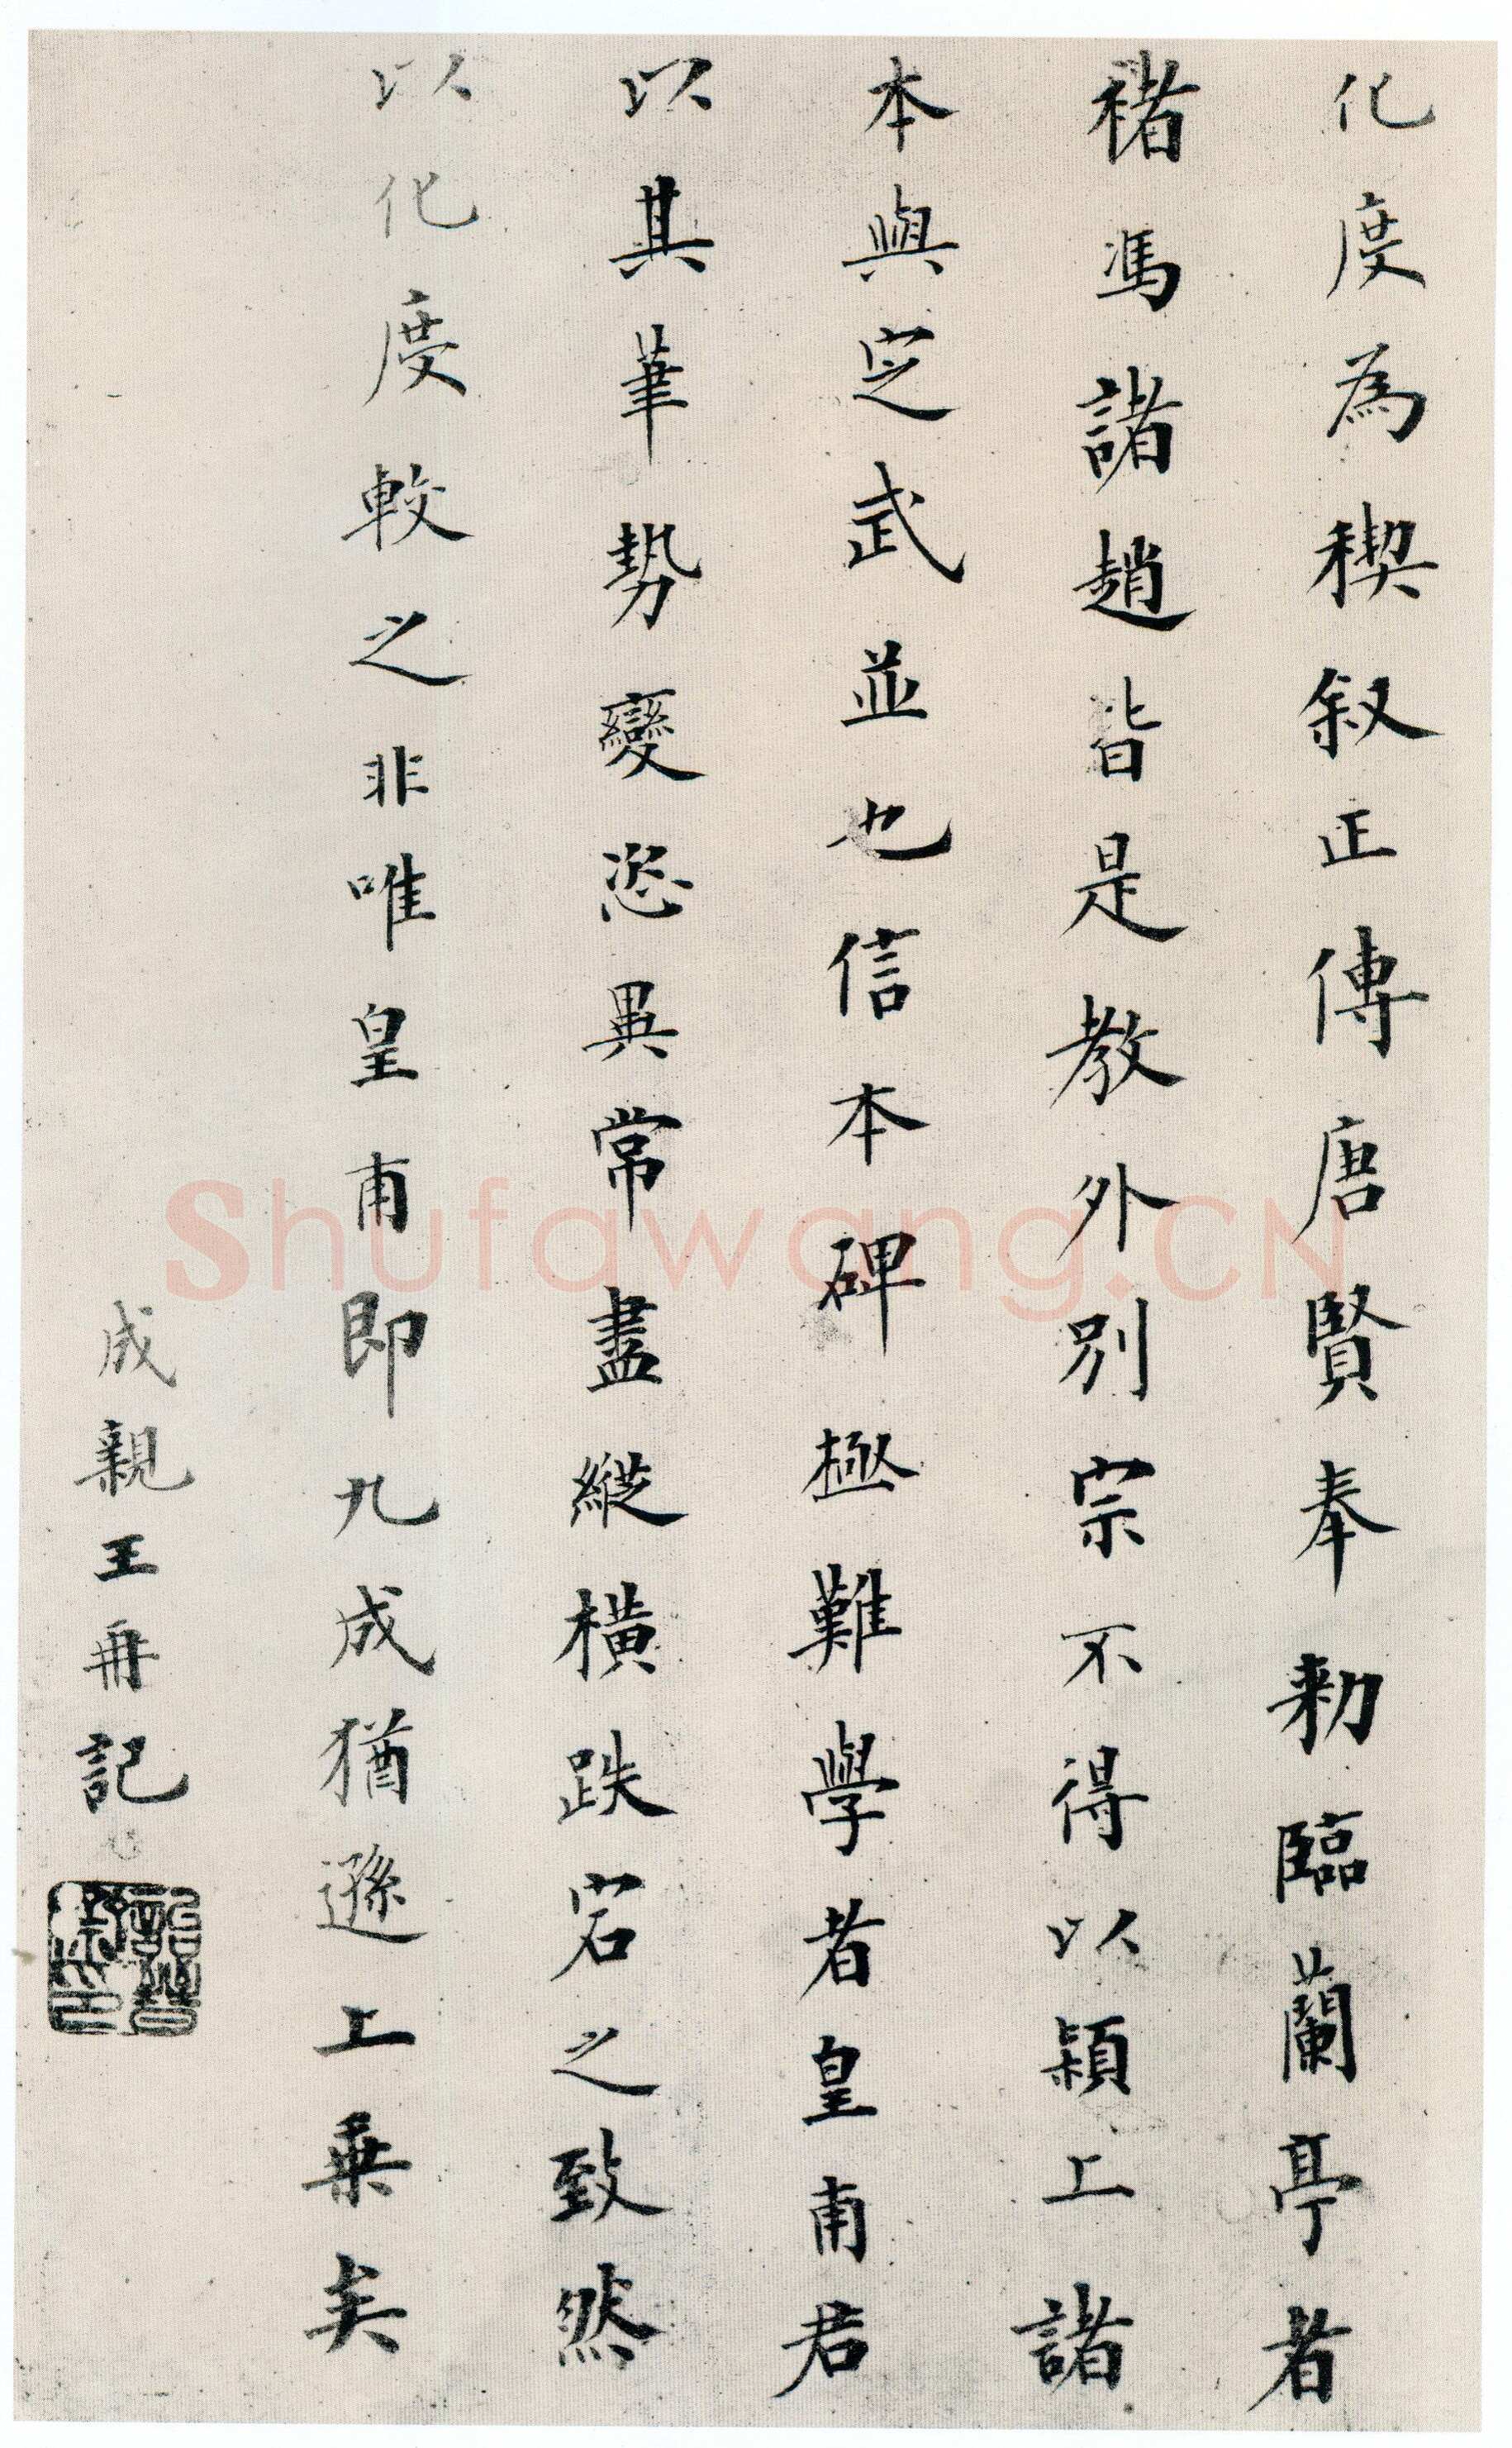 化度為稧叙正傳唐賢奉勑臨蘭亭者
褚馮諸趙皆是教外別宗不得以潁上諸
本與定武並也信本碑極難學者皇甫君
以其筆勢變恣異常盡縱橫跌宕之致然
以化度較之非唯皇甫即九成猶遜上乗矣
成親王冊記
Shufawang.CN